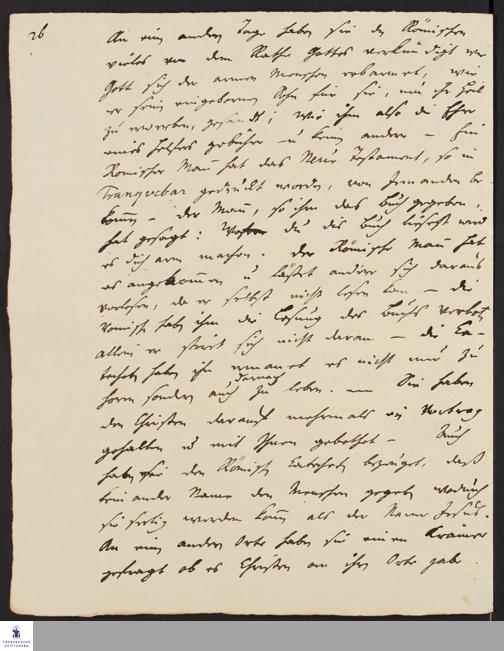 26
An einem andern Tage haben sie den Römischen
vieles von dem Rathe Gottes verkündigt wie
Gott sich der armen Menschen erbarmet, wie
er sein eingebornen Sohn für sie, um ihr Heil
zu erwerben, gesandt; wie ihm also die Ehre
eines Helfers gebühre u keinem andern – Ein
Römischer Mann hat das Neue Testament, so in
Tranquebar gedruckt worden, von jemanden be
kommen – der Mann, so ihm das Buch gegeben,
hat gesagt: du dis Buch liesest wird
es dich arm machen. der Römische Mann hat
es angenommen u läßet andere sich daraus
vorlesen, da er selbst nicht lesen kan – die
Römische haben ihm die Lesung des Buchs verboten
allein er sich nicht daran – die Ca-
techeten haben ihn ermanet es nicht nur zu
hören sondern auch darnach zu leben. — Sie haben
den Christen darauf mehrmals ein Vortrag
gehalten u mit Ihnen gebethet – Auch
haben sie den Römischen Catecheten bezeuget, daß
kein ander Name den Menschen gegeben wodurch
sie seelig werden können als der Name Jesus.
An einem andern Orte haben sie einen Krämer
gefragt ob es Christen an ihrem Orte gabe.
FRANCKESCHE
STIFTUNGEN